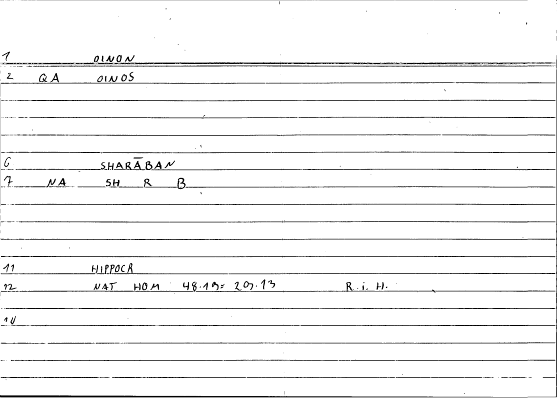 1 OINON
2 QA OINOS
6 SHARĀBAN
7 NA SH R B
11 HIPPOCR
12 NAT HOM 48.19= 209.13 R.i.H.
14